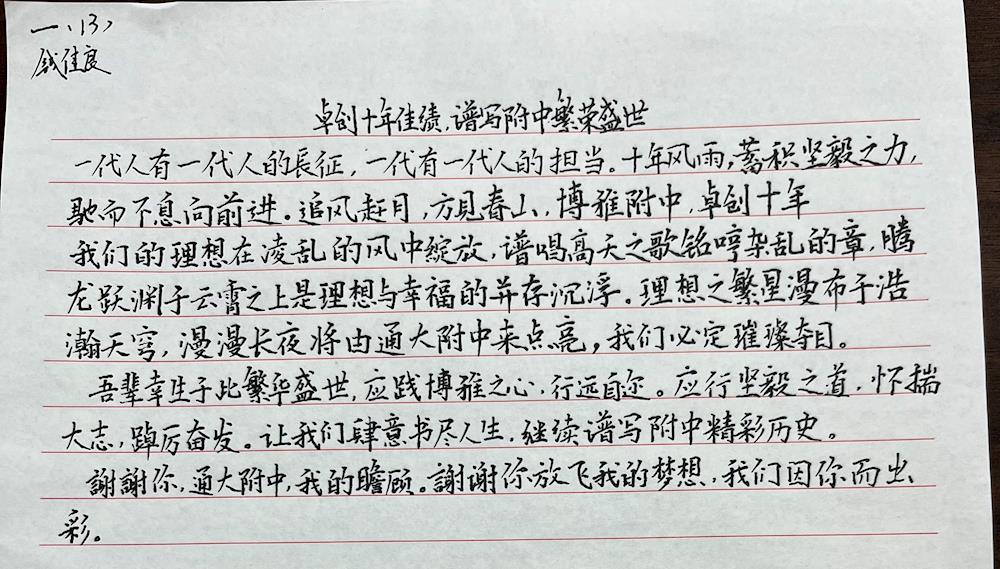 一、(3)
钱佳良
卓创十年佳绩，谱写附中繁荣盛世
一代人有一代人的長征，一代有一代人的担当。十年风雨，蓄积坚毅之力，
驰而不息向前进。追风赶月，方见春山，博雅附中，卓创十年
我们的理想在凌乱的风中绽放，谱唱高天之歌铭哼杂乱的章，腾
龙跃渊于云霄之上是理想与幸福的并存沉浮。理想之繁星漫布于浩
瀚天穹，漫漫长夜将由通大附中来点亮，我们必定璀璨夺目。
吾辈幸生于此繁华盛世，应践博雅之心，行远自迩。应行坚毅之道，怀揣
大志，踔厉奋发。让我们肆意书尽人生，继续谱写附中精彩历史。
謝謝你，通大附中，我的瞻顾。謝谢你放飞我的梦想，我们因你而出
彩。